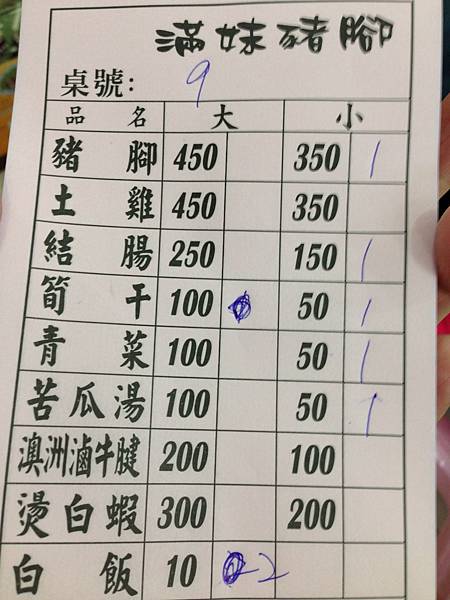 滿妹豬腳
桌號: 9
品名 大 小
豬腳 450 350 1
土雞 450 350
結腸 250 150 1
筍干 100 50 1
青菜 100 50 1
苦瓜湯 100 50 1
澳洲滷牛腱 200 100
燙白蝦 300 200
白飯 10 2